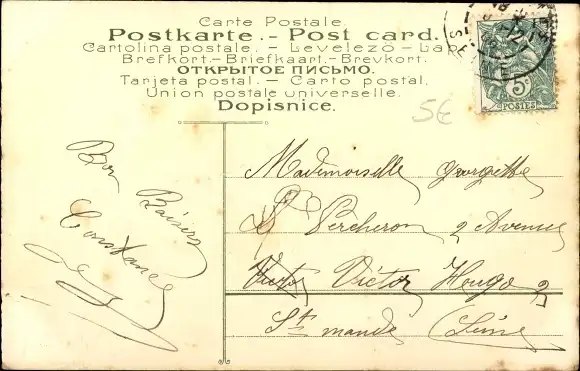 Carte Postale.
Postkarte. - Post card.
Cartolina postale. - Levelező - Lap
Brefkort. - Briefkaart. - Brevkort.
ОТКРЫТОЕ ПИСЬМО.
Tarjeta postal. - Carto postal,
Union postale universelle.
Dopisnice.
5€
5c
POSTES
Bon Baisers
Constance
Mademoiselle Georgette
Percheron 2 Avenue
Victor Hougo 2
St mandé (Seine